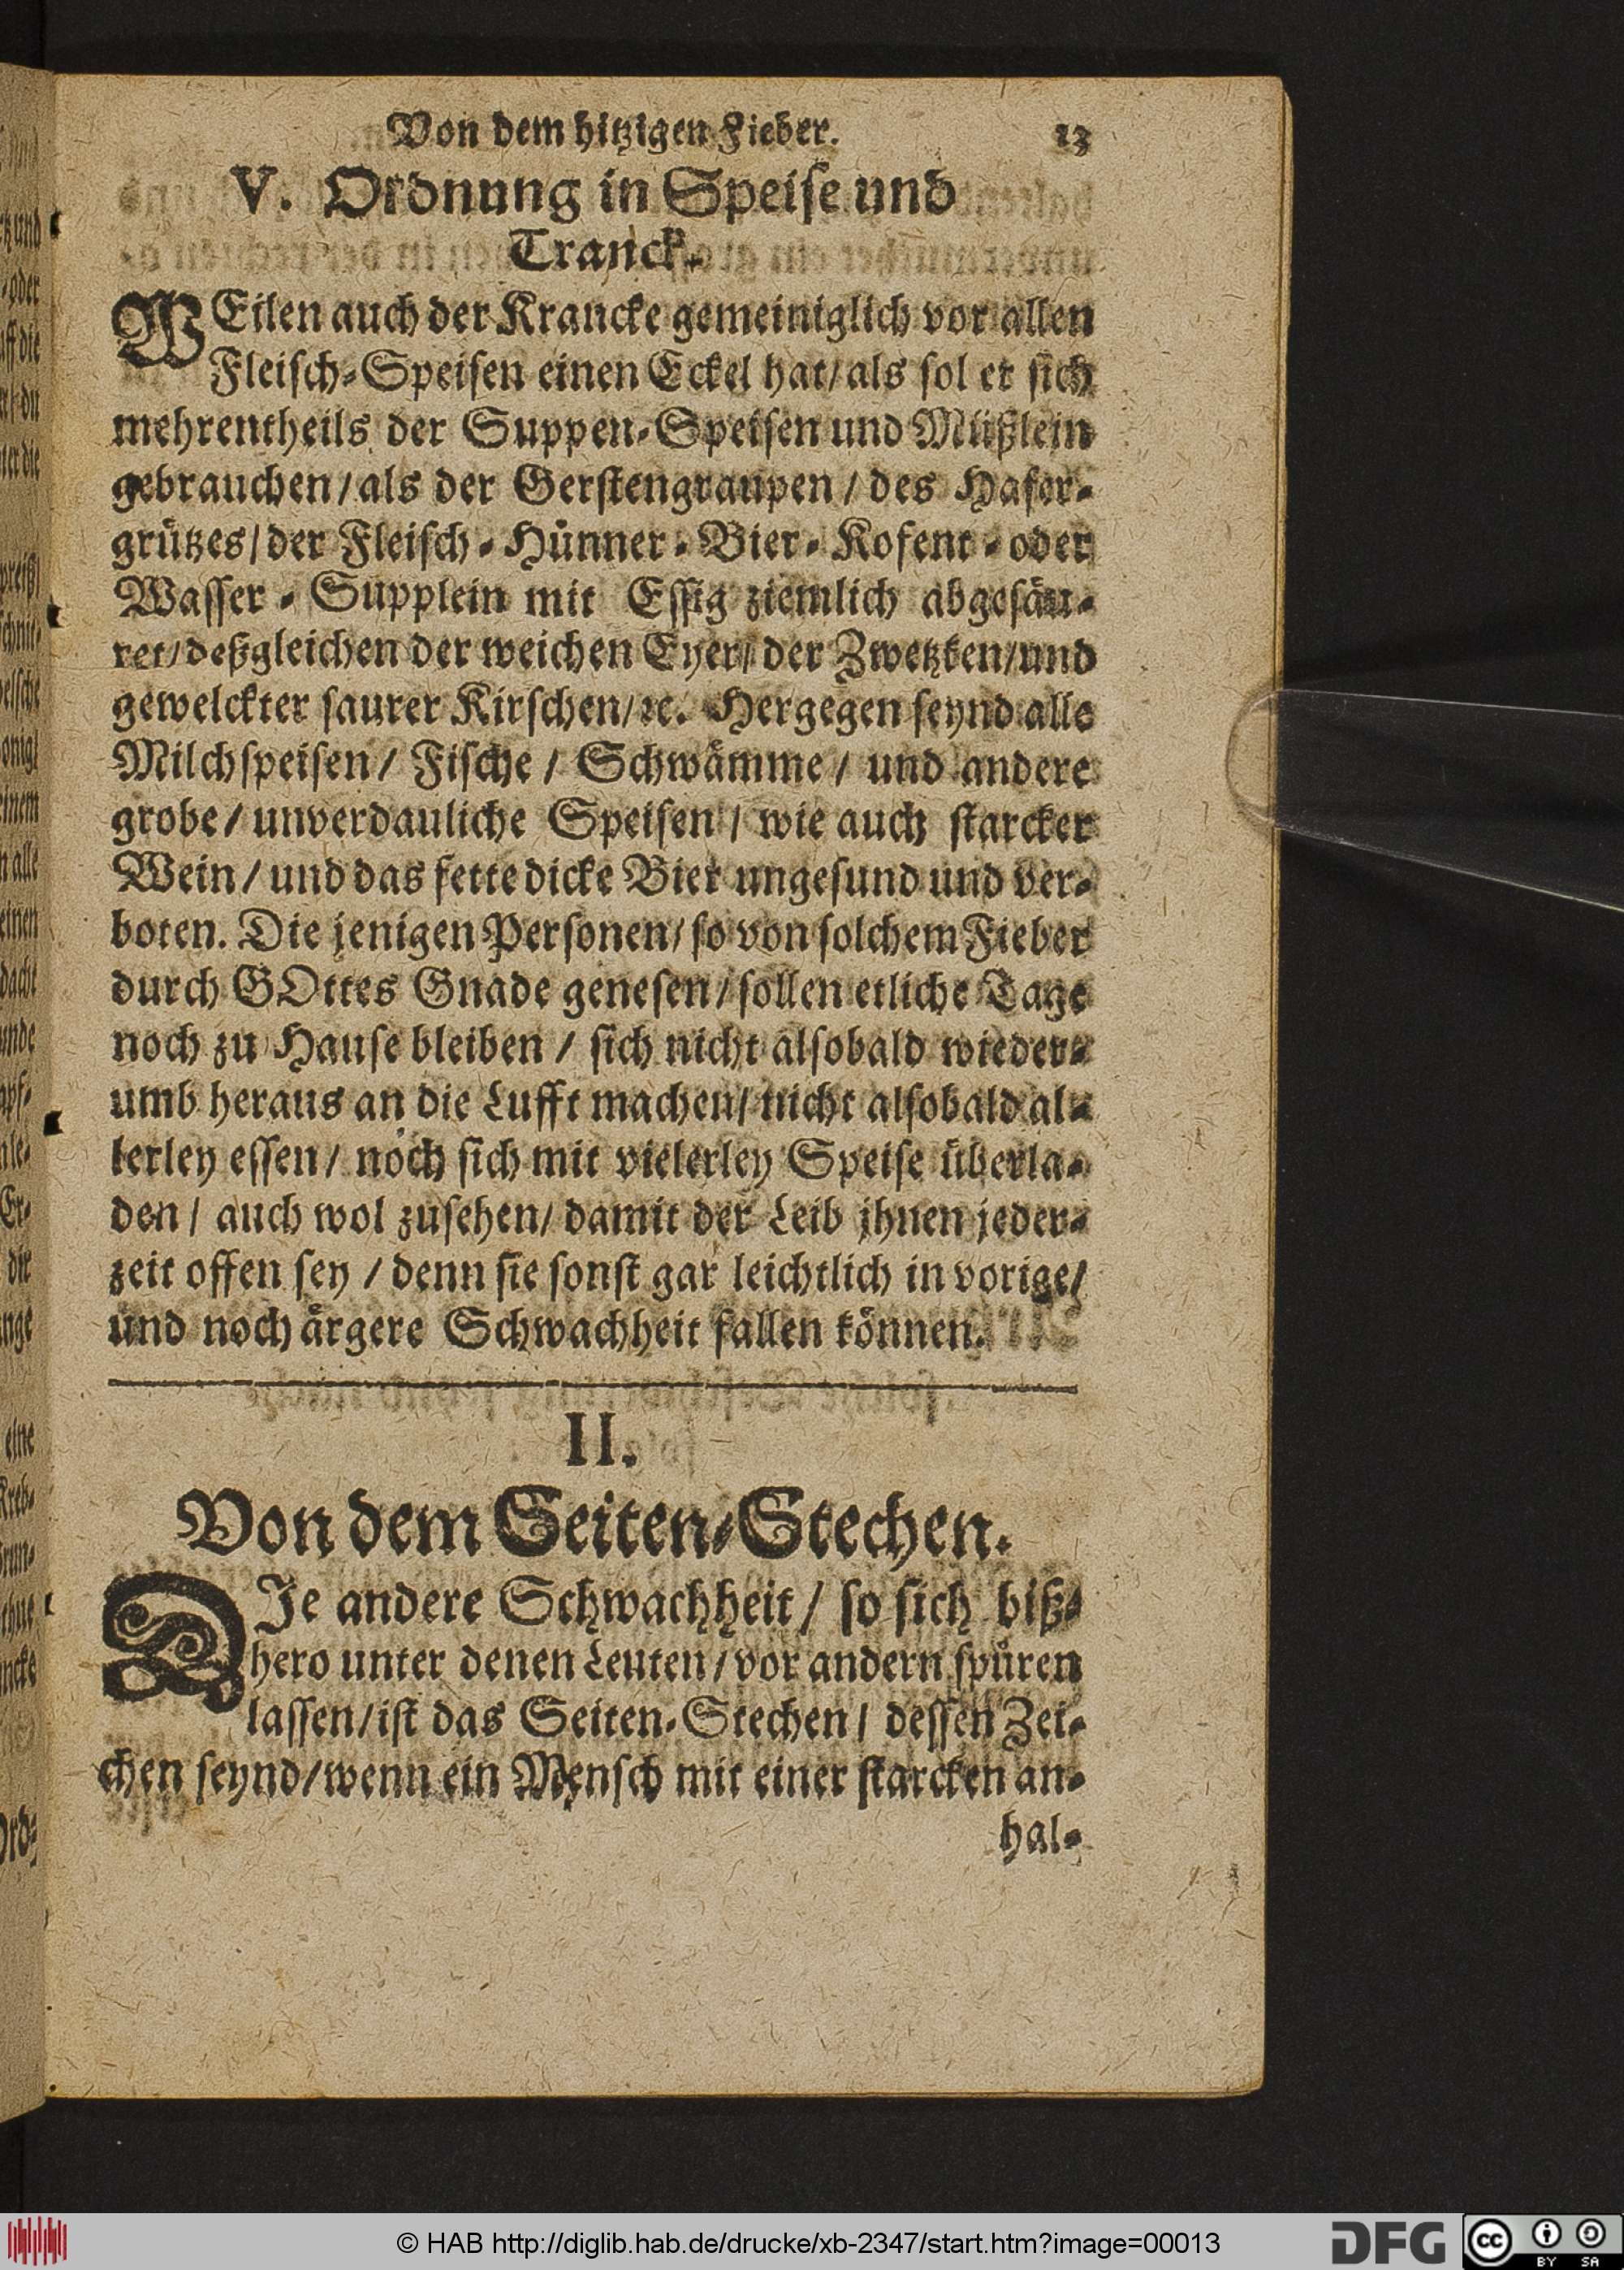 Von dem hitzigen Fieber. 13
V. Ordnung in Speise und
Tranck.
WEilen auch der Krancke gemeiniglich vor allen
Fleisch-Speisen einen Eckel hat/ als sol er sich
mehrentheils der Suppen-Speisen und Müßlein
gebrauchen/ als der Gerstengraupen/ des Hafer-
grützes/ der Fleisch-Hünner-Bier-Kofent-oder
Wasser-Supplein mit Essig ziemlich abgesäu-
ret/ deßgleichen der weichen Eyer/ der Zwetzken/ und
gewelckter saurer Kirschen/ ꝛc. Hergegen seynd alle
Milchspeisen/ Fische/ Schwämme/ und andere
grobe/ unverdauliche Speisen/ wie auch starcker
Wein/ und das fette dicke Bier ungesund und ver-
boten. Die jenigen Personen/ so von solchem Fieber
durch GOttes Gnade genesen/ sollen etliche Tage
noch zu Hause bleiben/ sich nicht alsobald wieder-
umb heraus an die Lufft machen/ nicht alsobald al-
lerley essen/ noch sich mit vielerley Speise überla-
den/ auch wol zusehen/ damit der Leib ihnen jeder-
zeit offen sey/ denn sie sonst gar leichtlich in vorige/
und noch ärgere Schwachheit fallen können.
II.
Von dem Seiten-Stechen.
DIe andere Schwachheit/ so sich biß-
hero unter denen Leuten/ vor andern spüren
lassen/ ist das Seiten-Stechen/ dessen Zei-
chen seynd/ wenn ein Mensch mit einer starcken an-
hal-
© HAB http://diglib.hab.de/drucke/xb-2347/start.htm?image=00013
DFG
cc BY SA